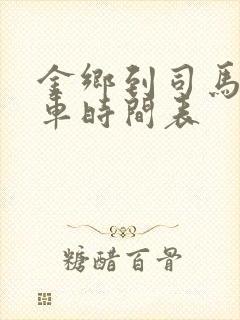 金鄉到司馬
車時間表
糖醋百骨